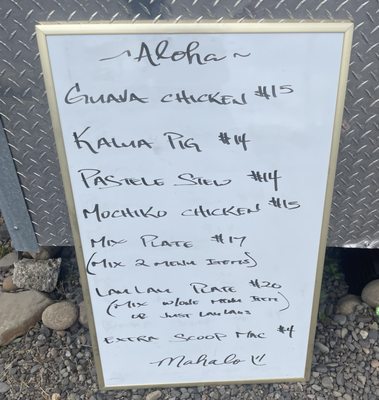 ~Aloha~
Guava Chicken $15
Kalua Pig $14
Pastele Stew $14
Mochiko Chicken $15
Mix Plate $17
(Mix 2 menu items)
Lau Lau Plate $20
(Mix w/one menu item
or just laulaus
Extra Scoop Mac $4
Mahalo